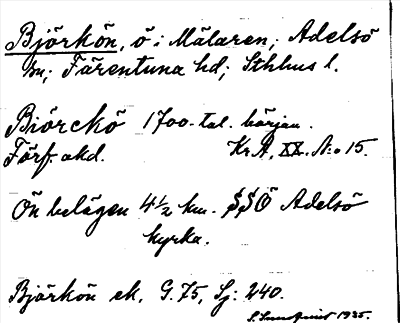 Björkön, ö i Mälaren; Adelsö
sn; Färentuna hd; Sthlms l.
Biörckö 1700-tal. början.
Förf. akd. Kr.A. XX. N:o 15.
Ön belägen 4 1/2 km. SSÖ Adelsö
kyrka.
Björkön ek. G. 75, Sj: 240.
S. Lundquist 1935.